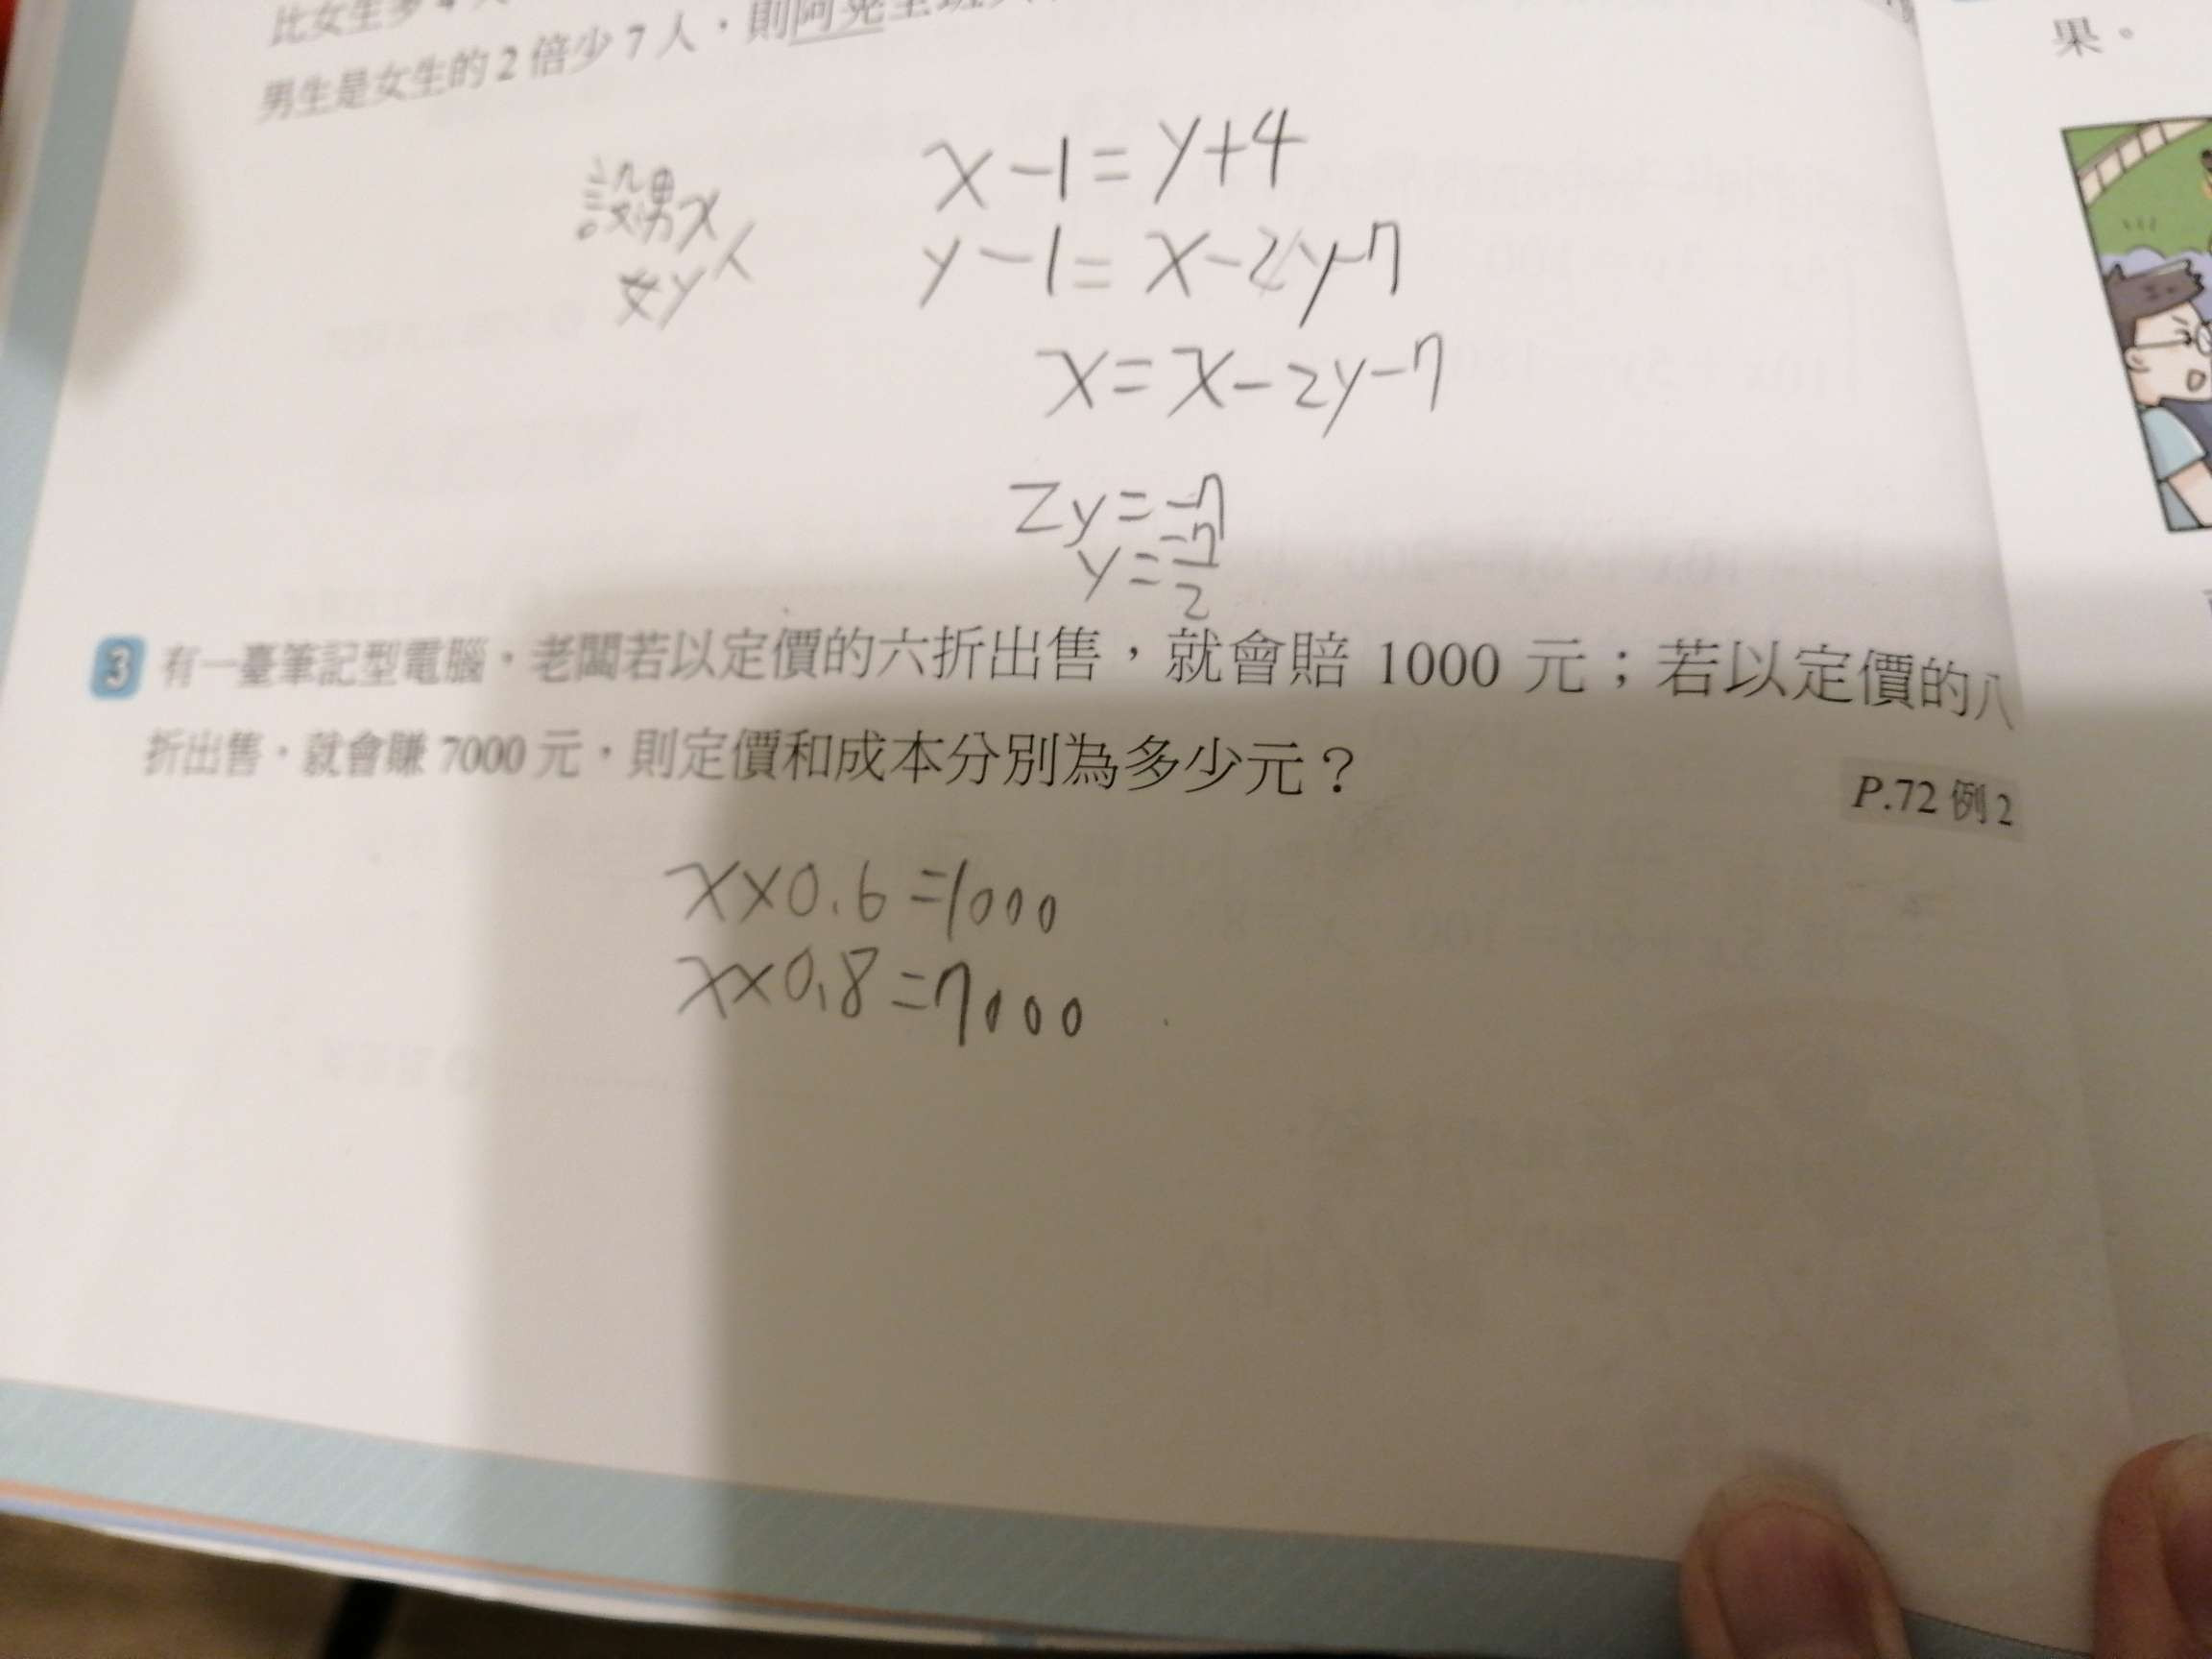 比女生多4人
男生是女生的2倍少7人，則阿晃全班
果。
設男x人
女y
x-1=y+4
y-1=x-2y-7
x=x-2y-7
2y=-7
y=-7/2
3 有一臺筆記型電腦，老闆若以定價的六折出售，就會賠 1000 元；若以定價的八
折出售，就會賺 7000 元，則定價和成本分別為多少元？
P.72 例2
x×0.6=1000
x×0.8=7000